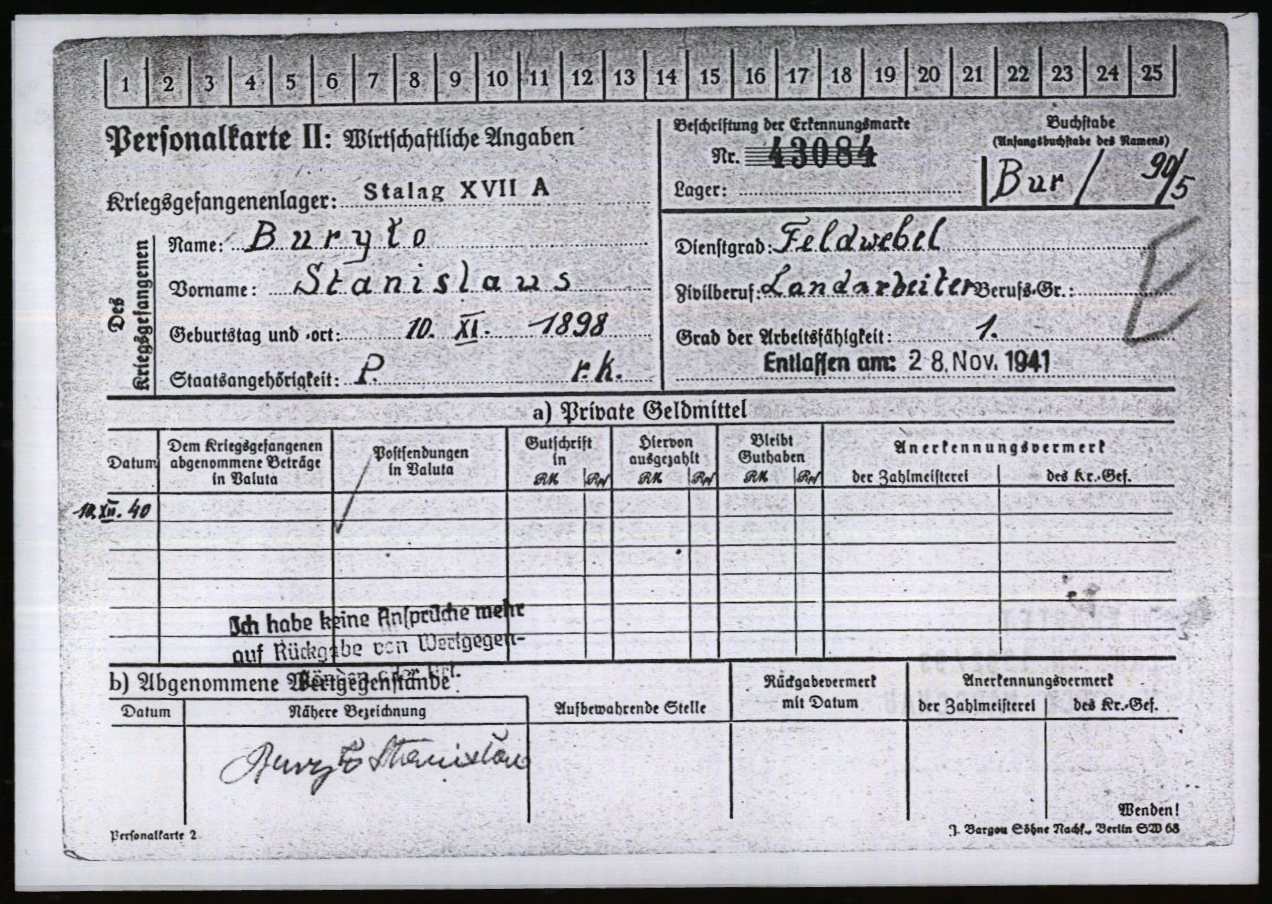 1 2 3 4 5 6 7 8 9 10 11 12 13 14 15 16 17 18 19 20 21 22 23 24 25
Personalkarte II: Wirtschaftliche Angaben
Kriegsgefangenenlager: Stalag XVII A
Des Kriegsgefangenen
Name: Buryło
Vorname: Stanislaus
Geburtstag und -ort: 10. XI. 1898
Staatsangehörigkeit: P. r.k.
Beschriftung der Erkennungsmarke
Nr. 43084
Lager:
Buchstabe
(Anfangsbuchstabe des Namens)
Bur / 90/5
Dienstgrad: Feldwebel
Zivilberuf: Landarbeiter Berufs-Gr.:
E
Grad der Arbeitsfähigkeit: 1.
Entlassen am: 28. Nov. 1941
a) Private Geldmittel
Datum
Dem Kriegsgefangenen
abgenommene Beträge
in Valuta
Postsendungen
in Valuta
Gutschrift
in
RM Rpf
Hiervon
ausgezahlt
RM Rpf
Bleibt
Guthaben
RM Rpf
Anerkennungsvermerk
der Zahlmeisterei des Kr.-Gef.
10. XII. 40
Ich habe keine Ansprüche mehr
auf Rückgabe von Wertgegen-
ständen oder
b) Abgenommene Wertgegenstände
Datum
Nähere Bezeichnung
Aufbewahrende Stelle
Rückgabevermerk
mit Datum
Anerkennungsvermerk
der Zahlmeisterei des Kr.-Gef.
Buryło Stanisław
Wenden!
Personalkarte 2
J. Bargou Söhne Nachf., Berlin SW 68